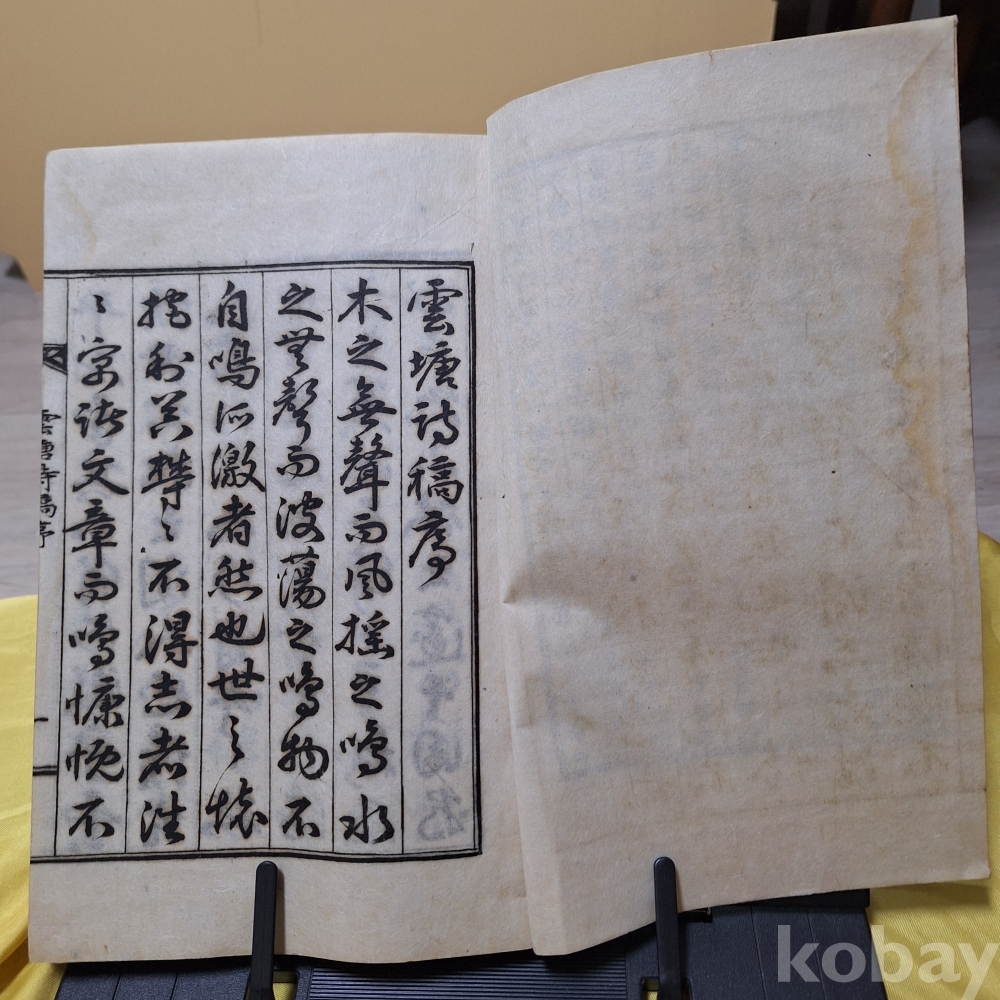 雲塘詩稿序
木之無聲而風搖之鳴水
之無聲而波蕩之鳴物不
自鳴所激者然也世之懷
抱利器鬱〻不得志者往
〻寓諸文章而鳴慷慨不
雲塘詩稿序
一
kobay